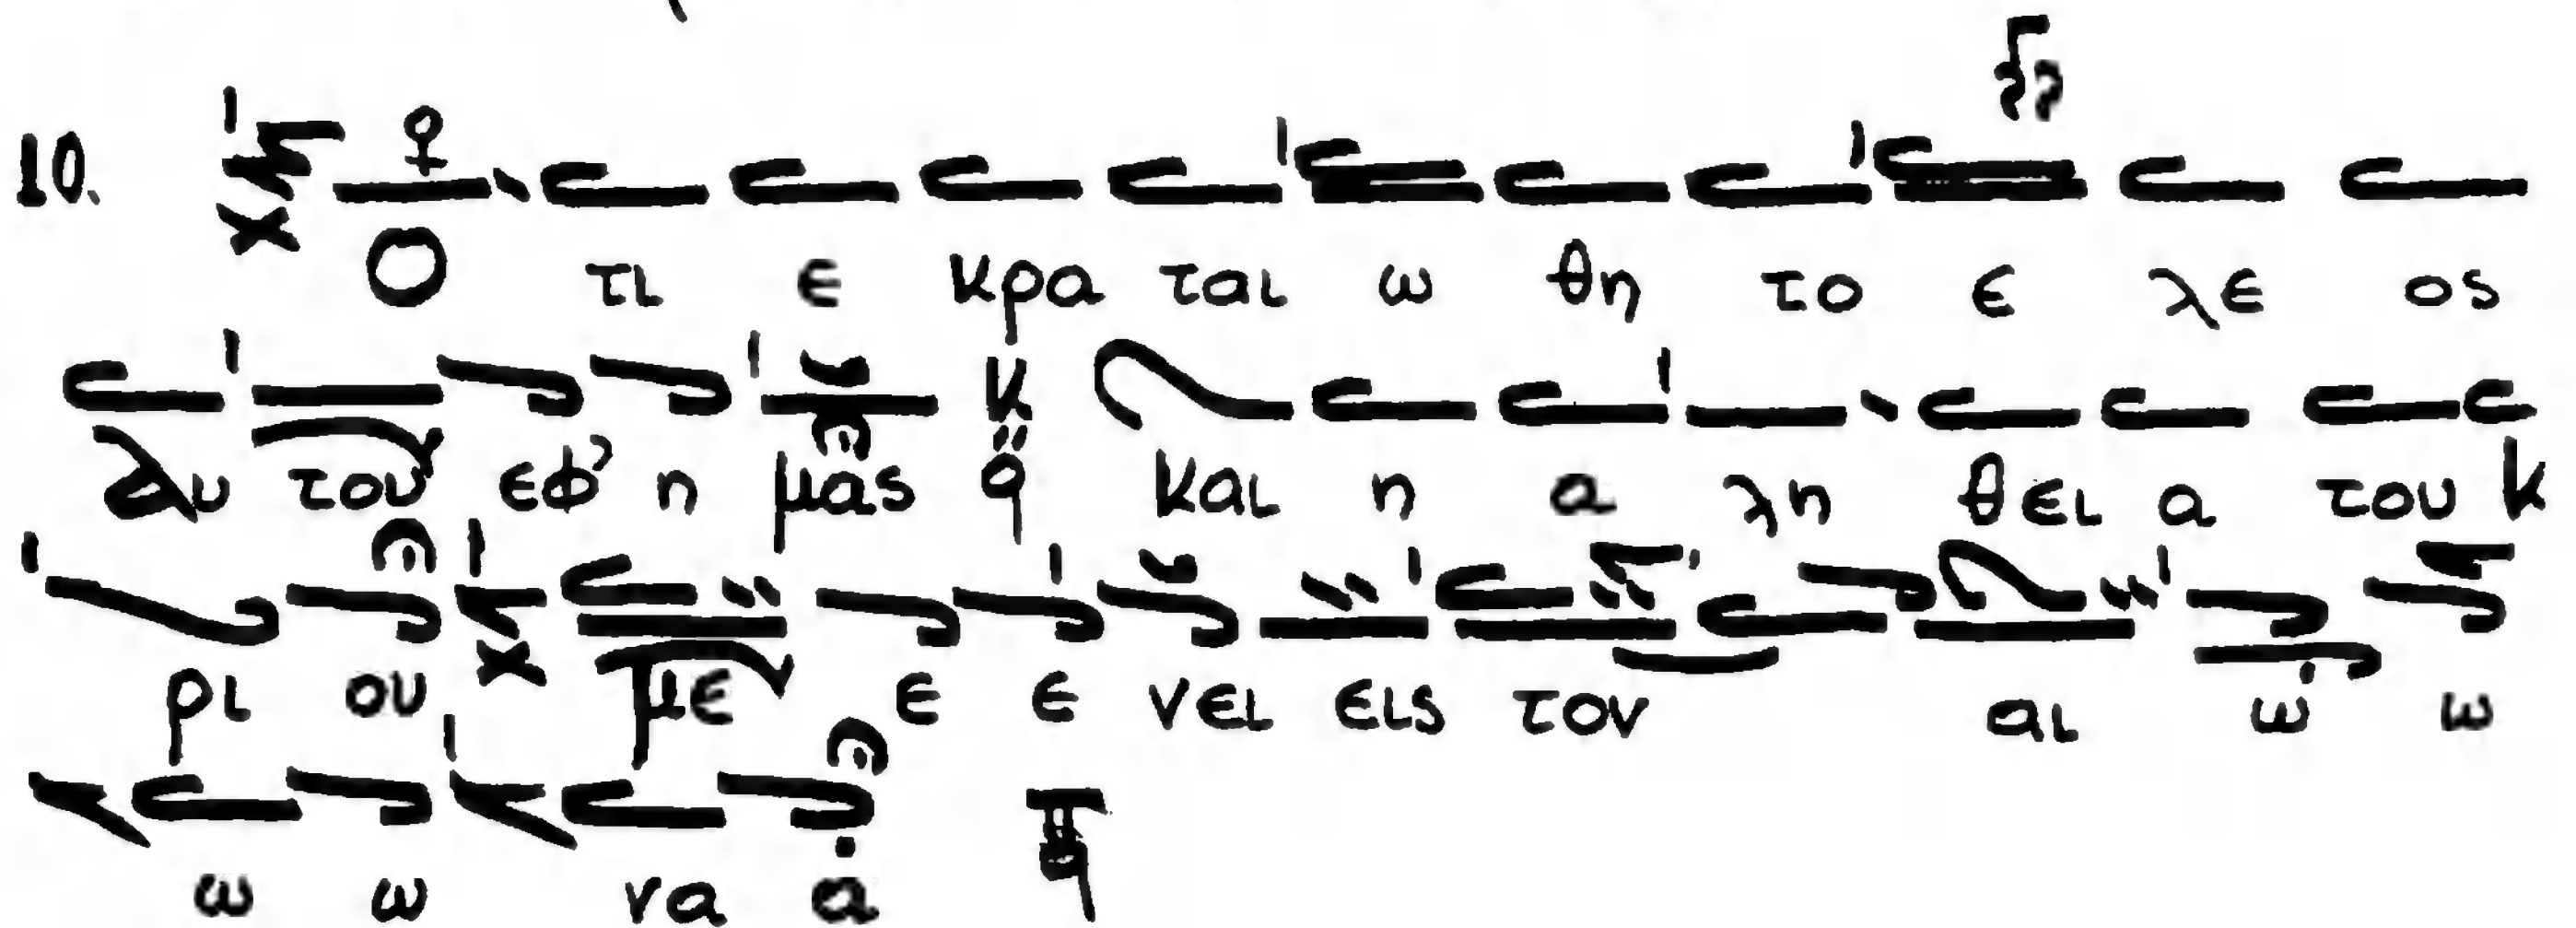 10. Ο τι ε κρα ται ω θη το ε λε ος
αυ του εφ' η μας και η α λη θει α του κ
ρι ου με ε ε νει εις τον αι ω ω
ω ω να α